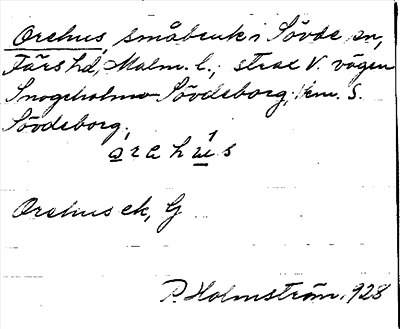 Orehus, småbruk i Sövde sn,
Färs hd, Malm. l., strax V. vägen
Snogeholm–Sövdeborg, 1 km. S.
Sövdeborg,
orehu̱s
Orehus ek, G
P. Holmström, 928